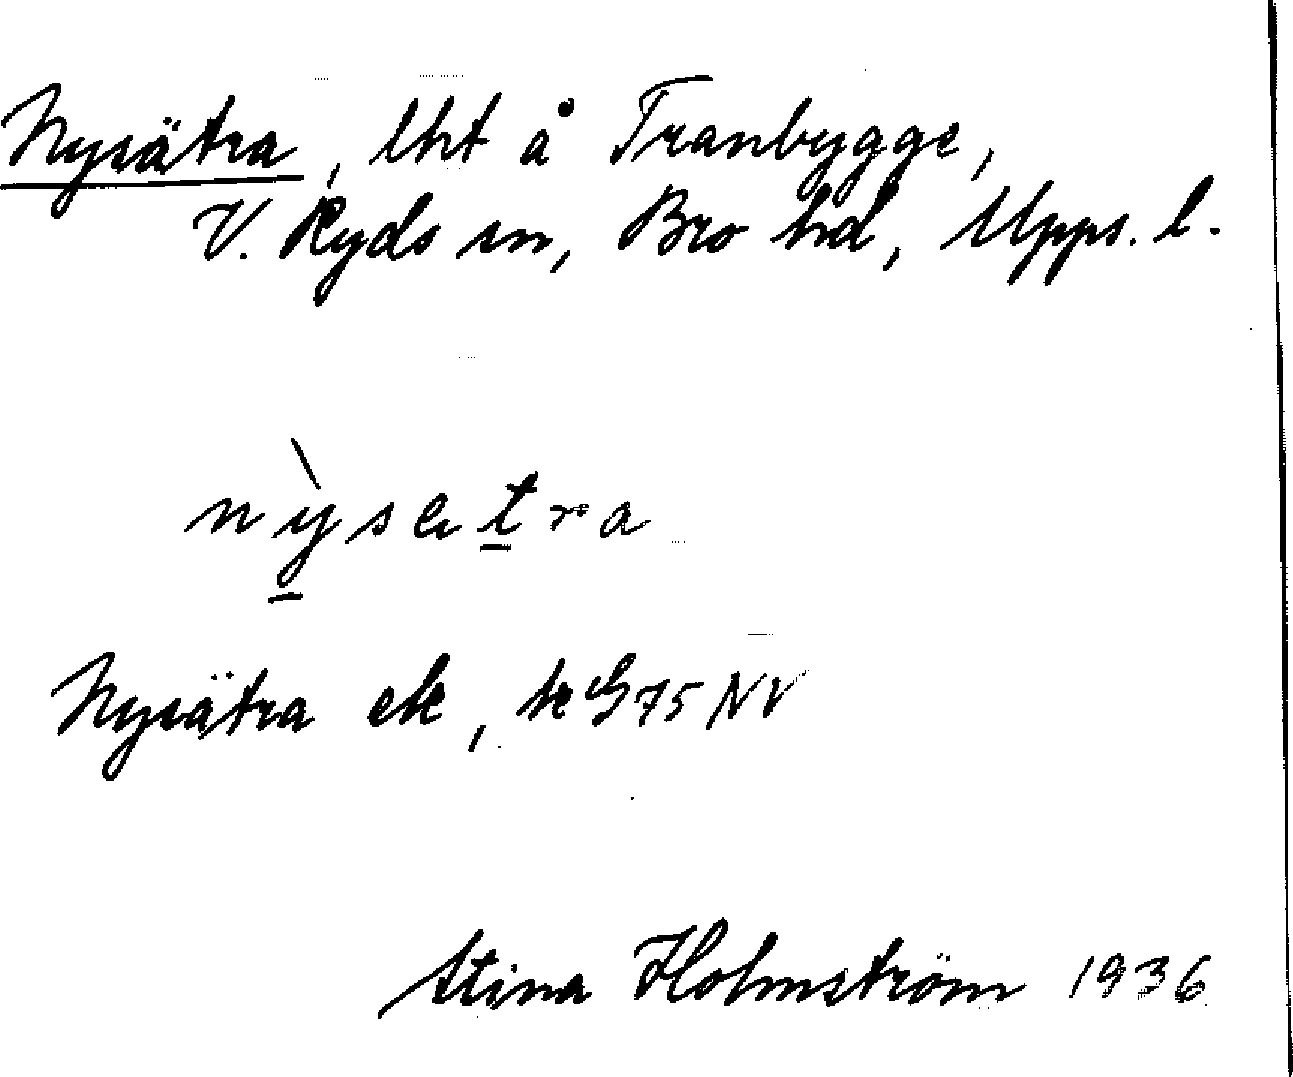 Nysätra, lht å Tranbygge,
V. Ryds sn, Bro hd, Upps. l.
nỳsetra
Nysätra ek, k G 75 NV
Stina Holmström 1936